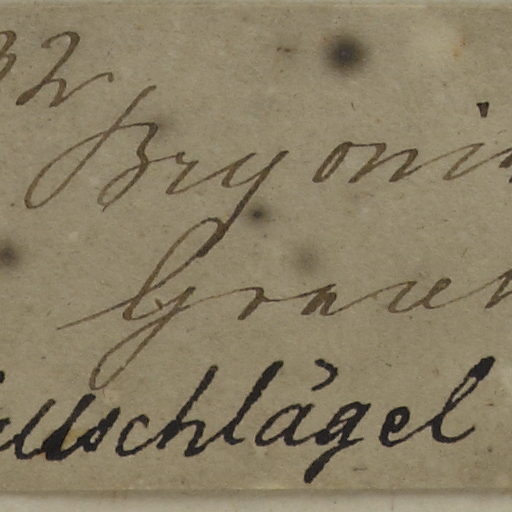 32
Bryoni
Graue
ullschlägel